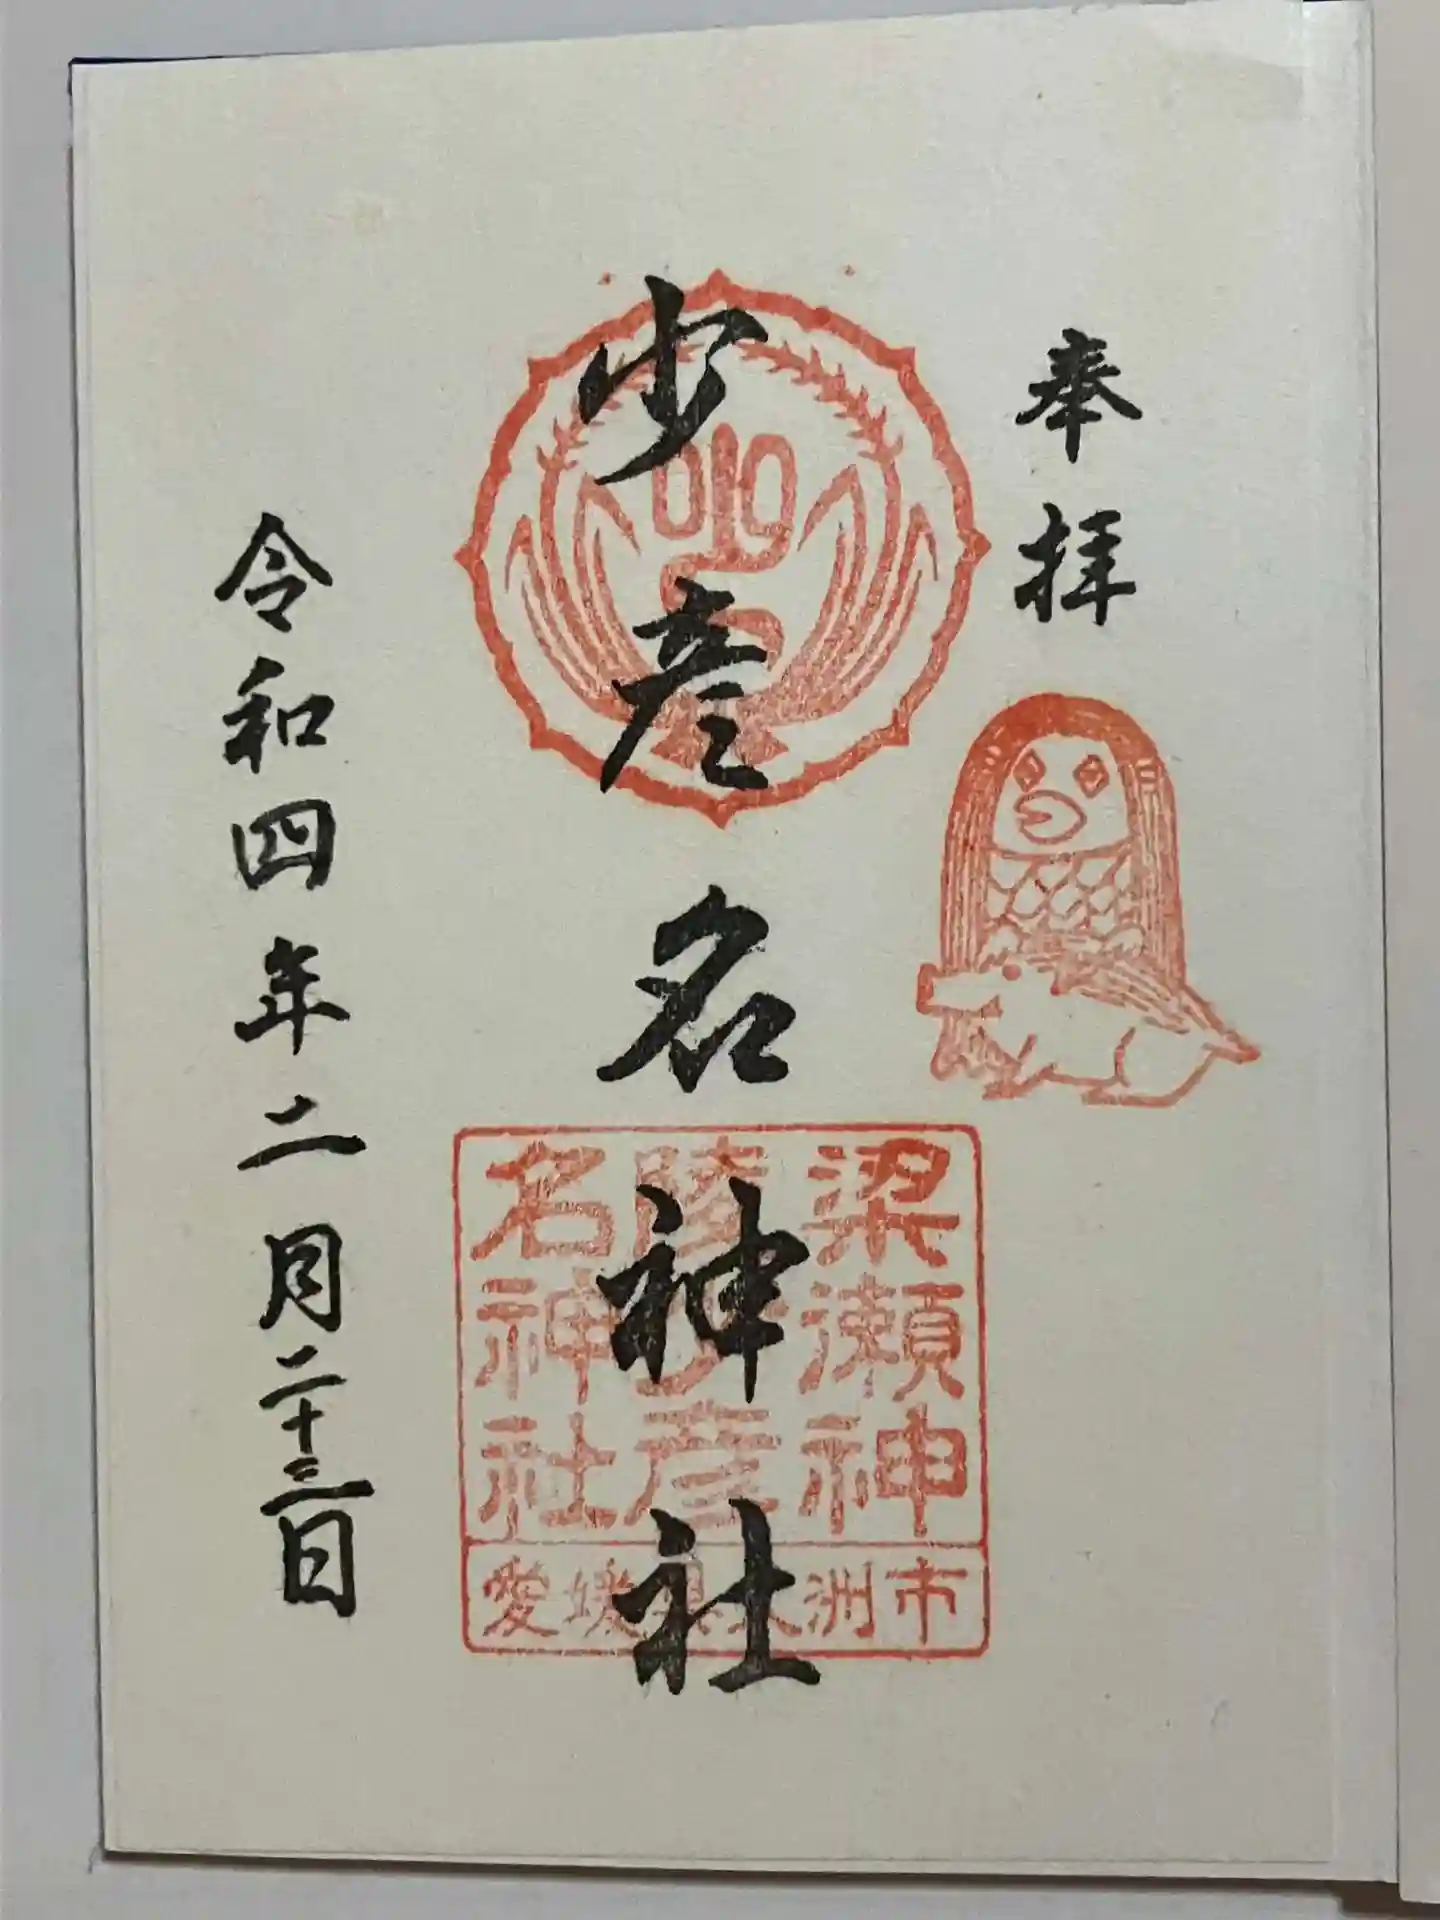 奉拝
少彦名神社
令和四年二月二十三日
梁瀬神
陵少彦
名神社
愛媛県大洲市